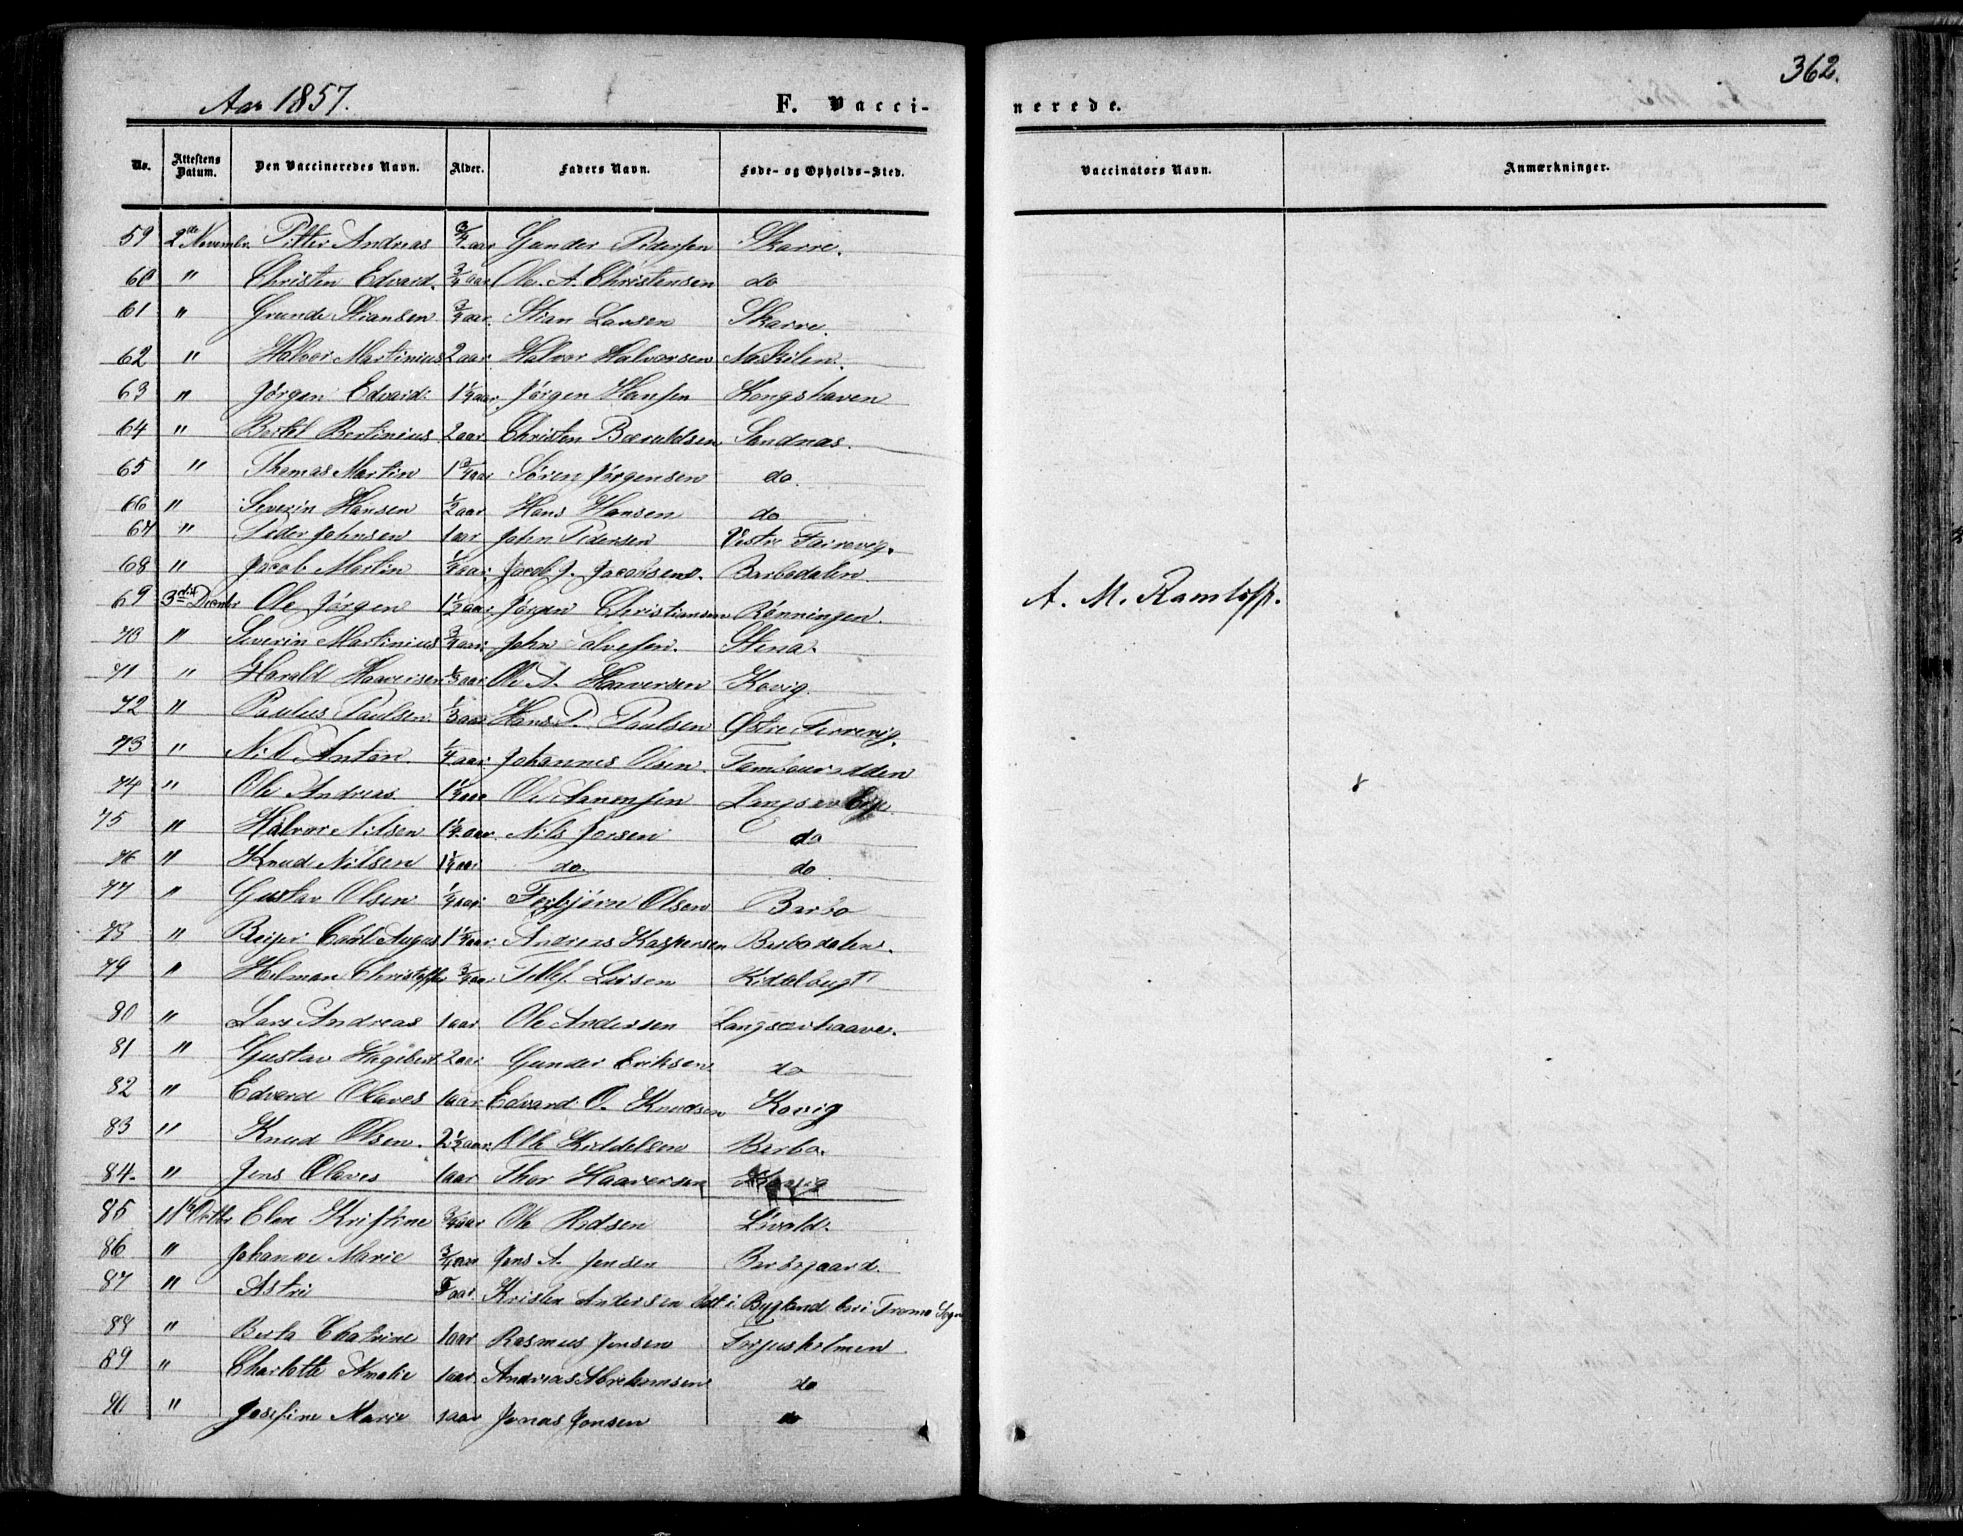 362.
Aar 1857. F. Vacci- nerede.
No. Attestens Datum. Den Vaccineredes Navn. Alder. Faders Navn. Føde- og Opholds-Sted. Vaccinators Navn. Anmærkninger.
59 2de Novembr. Pitter Andreas 3/4 aar Gunder Pedersen Skarre.
60 " Christen Edvard. 3/4 aar Ole A. Christensen do
61 " Grunde Stiansen 3/4 aar. Stian Larsen Skarre.
62 " Halvor Martinius 2 aar Halvor Halvorsen Naskilen.
63 " Jørgen Edvard 1 1/4 aar Jørgen Hansen Kongshaven
64 " Bertel Bertinius 2 aar Christen Sandnæs.
65 " Thomas Martin 1 3/4 aar Sören Jørgensen do.
66 " Severin Hansen 1/2 aar Hans Hansen do
67 " Peder Johnsen 1 aar John Pedersen Vestre
68 " Jacob Martin 1/4 aar. Jacob J. Jacobsen. Barbodalen
69 3die Decembr Ole Jörgen 1 1/2 aar Jörgen Christiansen Rönningen.
70 " Severin Martinius 3/4 aar John Salvesen. Stena.
71 " Harald Haaversen 1/3 aar Ole A. Haaversen Kovig.
72 " Paulus Paulsen 1/3 aar Hans P. Paulsen Østre
73 " Nils Anton. 1/4 aar Johannes Olsen. Tambourodden
74 " Ole Andreas 1 1/2 aar Ole Langsæ
75 " Halvor Nilsen 1 1/4 aar Nils Jorsen do
76 " Knud Nilsen 1 1/4 aar do. do
77 " Gustav Olsen 1/4 aar Terbjörn Olsen Barbo
78 " Carl August 1 1/4 aar. Andreas Kaspersen Barbodalen.
79 " Helman Christoffer 3/4 aar. Larsen Kiddelbugt
80 " Lars Andreas 1 aar Ole Andersen Langsæehaaven.
81 " Gustav 2 aar Gunder Eriksen do
82 " Edvard Olaves 1 aar Edvard O. Knudsen Kovig
83 " Knud Olsen. 2 1/2 aar. Ole Kiddelsen Barbo.
84. " Jens Olaves 1 aar Thor Haaversen Kovig
85 11te Octbr Elen Kristine 3/4 aar Ole Lövold.
86 " Johanne Marie 3/4 aar Jens A. Jensen Barbogaard.
87 " Astri aar. Kristen Andersen født i Bygland bor i Tromø Sogn
88 " Berta Chatrine 1 aar Rasmus Jensen Torjusholmen
89 " Charlotte Amalie 1 aar. Andreas Abrahamsen do
90 " Josefine Marie 1 aar Jonas Jonsen do
A. M. Ramtoff.